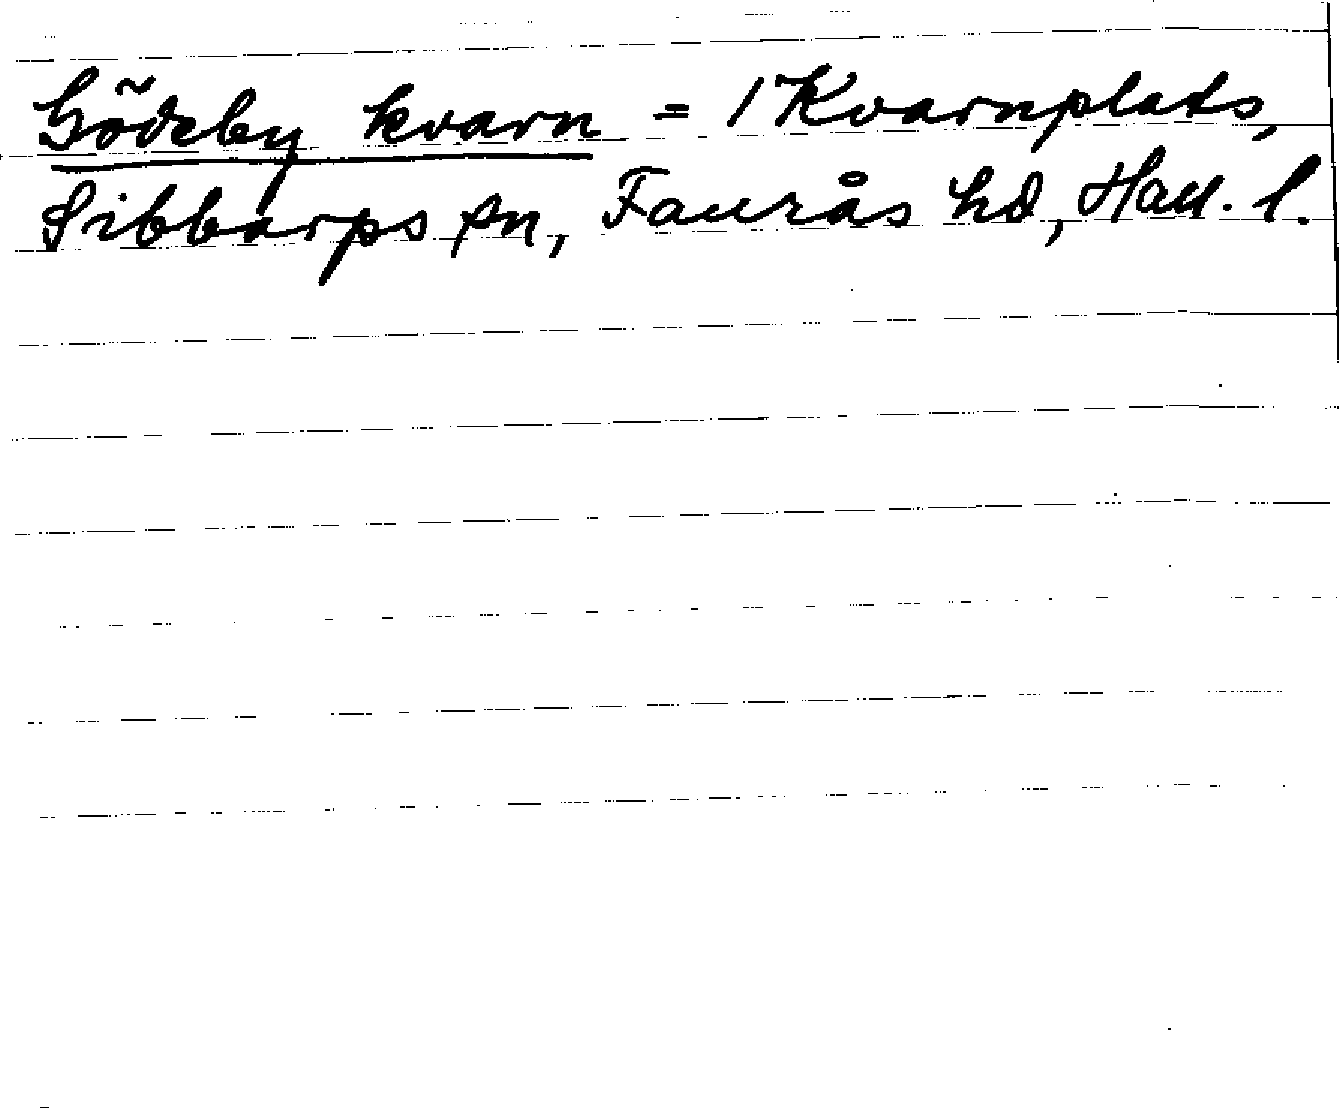 Gödeby kvarn = 1 Kvarnplats,
Sibbarps sn, Faurås hd, Hall. l.